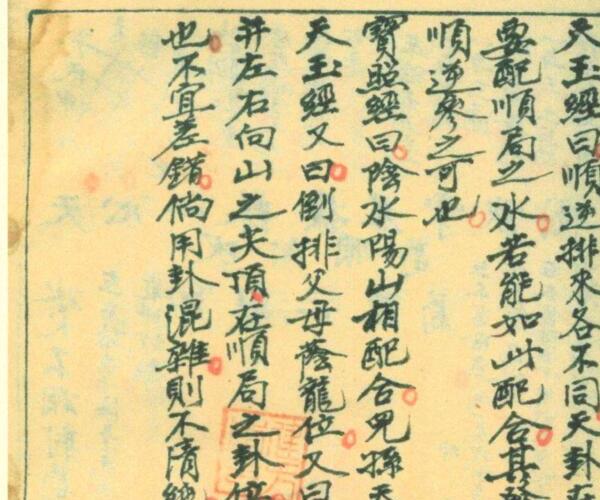 天玉經曰順逆排來各不同天卦在
要配順局之水若能如此配合其
順逆參之可也
寶照經曰陰水陽山相配合兒孫天
天玉經又曰倒排父母蔭龍位又曰
并左右向山之尖頂在順局之卦位
也不宜差錯倘用卦混雜則不清純